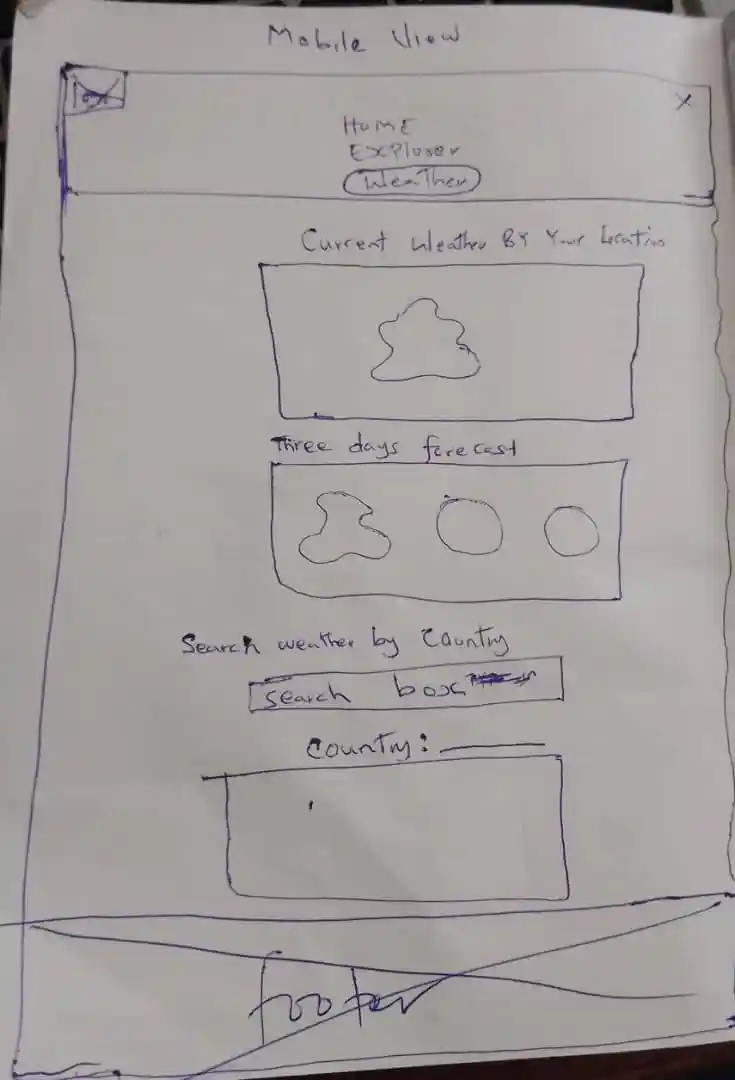 Mobile View
logo
X
HOME
EXPlorer
Weather
Current Weather BY Your Location
Three days forecast
Search weather by Country
search box
Country:
footer